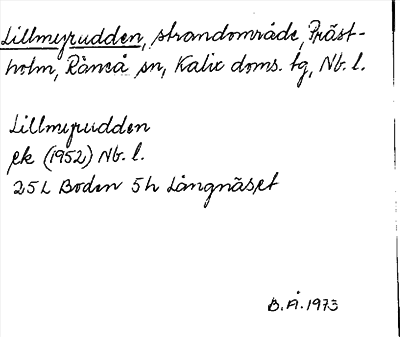 Lillmyrudden, strandområde, Präst-
holm, Råneå sn, Kalix doms. tg, Nb. l.
Lillmyrudden
ek (1952) Nb. l.
25L Boden 5h Långnäset
B.Å. 1973